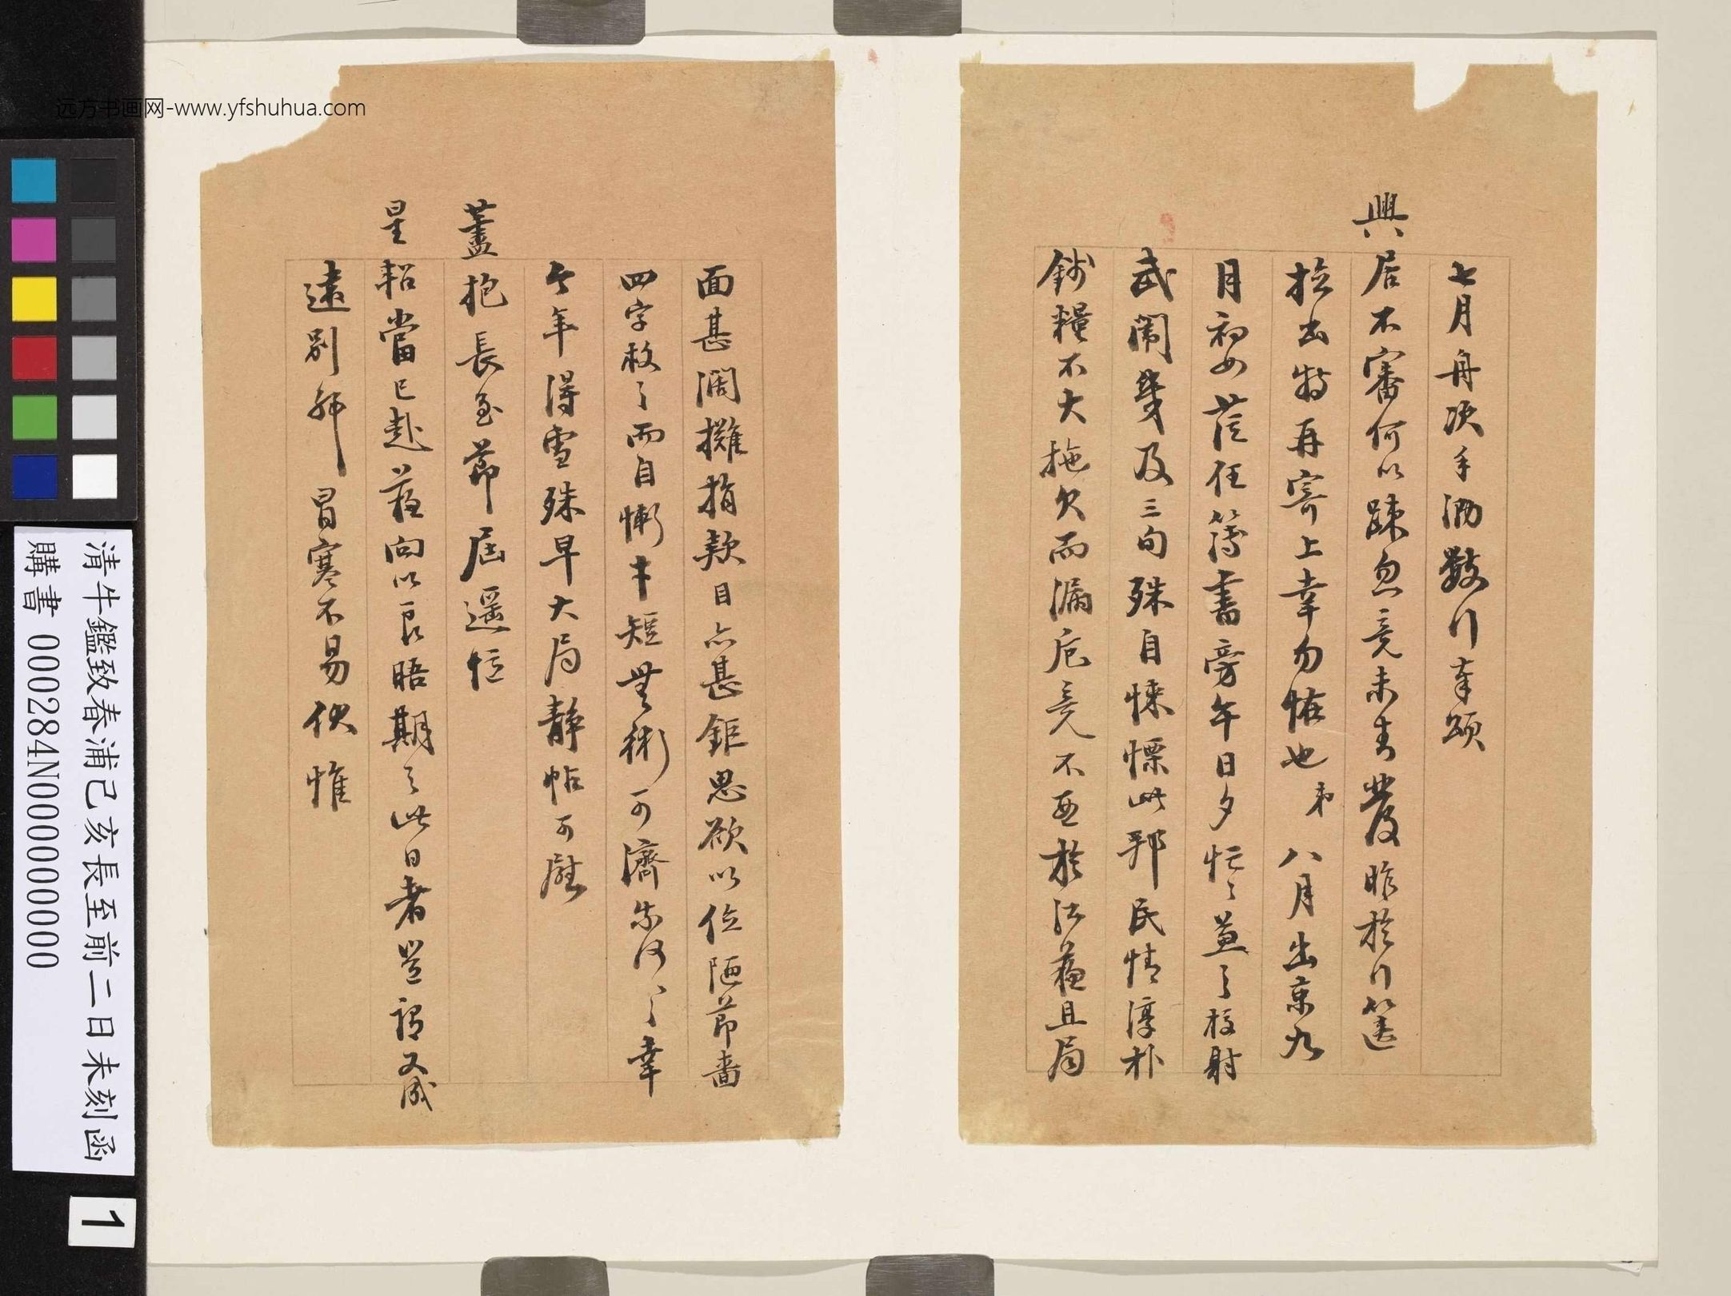 七月舟次手泐數行奉頌
興居不審何以疎忽竟未書發昨於行篋
撿出特再寄上幸勿怪也弟八月出京九
月初如蒞任簿書旁午日夕忙忙並了校射
武闈幾及三旬殊自悚慄此邦民情淳朴
錢糧不大拖欠而漏卮竟不亞於江蘇且局
面甚濶攤捐款目亦甚鉅思欲以位陋節嗇
四字救之而自慚才短無術可濟奈何奈何幸
今年得雪殊早大局靜帖可慰
藎抱長至節屆遥恒
星軺當已赴蘇向以良晤期之此日者豈謂又成
遠別耶冒寒不易伏惟
清牛鑑致春浦己亥長至前二日未刻函
購書 000284N000000000
1
远方书画网-www.yfshuhua.com